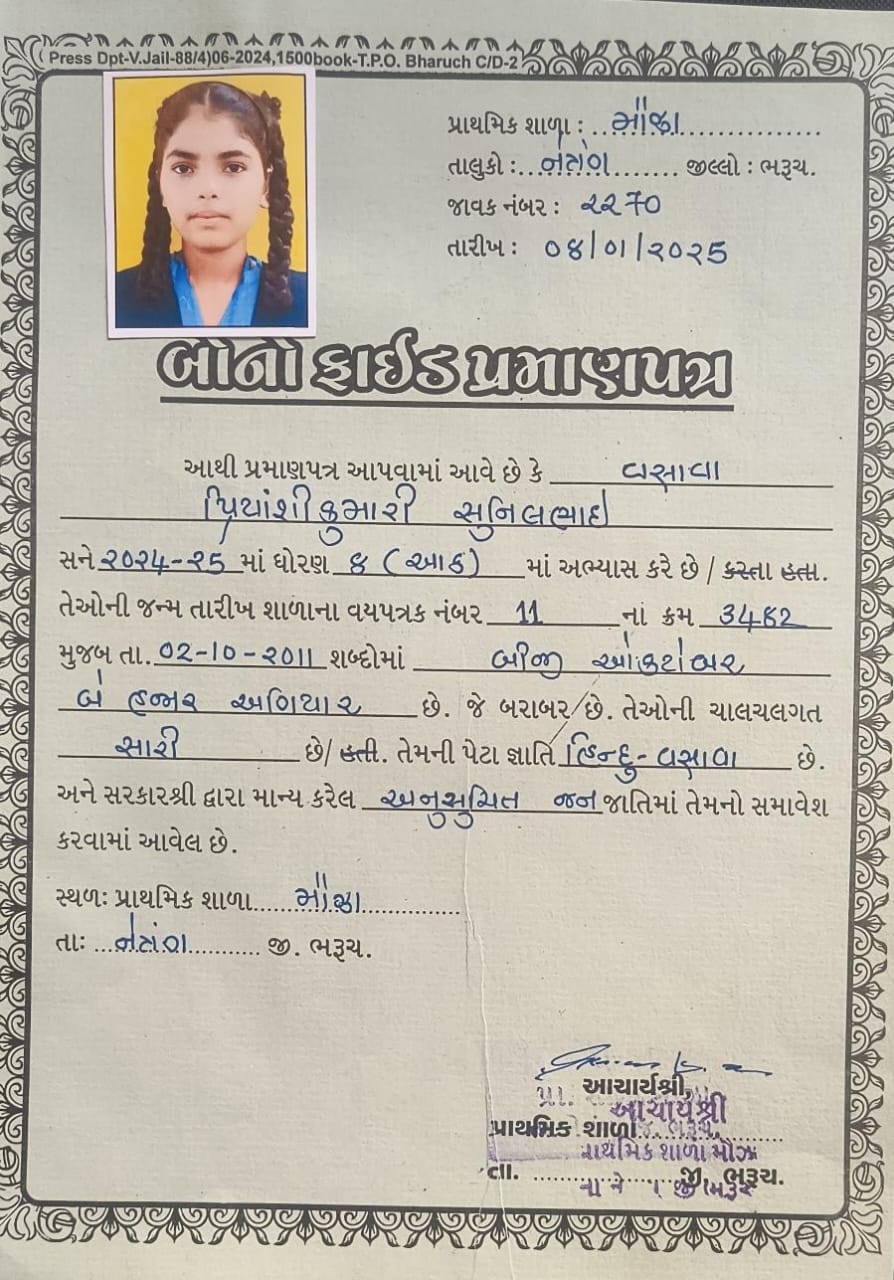 Press Dpt-V.Jail-88/4)06-2024,1500book-T.P.O. Bharuch C/D-2
પ્રાથમિક શાળા : મૌઝા
તાલુકો : નેત્રંગ જીલ્લો : ભરૂચ.
જાવક નંબર : ૨૨૭૦
તારીખ : ૦૪/૦૧/૨૦૨૫
બોનો ફાઈડ પ્રમાણપત્ર
આથી પ્રમાણપત્ર આપવામાં આવે છે કે વસાવા
પ્રિયાંશીકુમારી સુનિલભાઇ
સને ૨૦૨૪-૨૫ માં ધોરણ ૮ (આઠ) માં અભ્યાસ કરે છે / કરતા હતા.
તેઓની જન્મ તારીખ શાળાના વયપત્રક નંબર 11 નાં ક્રમ
મુજબ તા. ૦૨-૧૦-૨૦૧૧ શબ્દોમાં બીજી ઓક્ટોબર
બે હજાર અગિયાર છે. જે બરાબર છે. તેઓની ચાલચલગત
સારી છે/ હતી. તેમની પેટા જ્ઞાતિ હિન્દુ-વસાવા છે.
અને સરકારશ્રી દ્વારા માન્ય કરેલ અનુસુચિત જન જાતિમાં તેમનો સમાવેશ
કરવામાં આવેલ છે.
સ્થળઃ પ્રાથમિક શાળા મૌઝા
તાઃ નેત્રંગ જી. ભરૂચ.
આચાર્યશ્રી,
આચાર્યશ્રી
પ્રાથમિક શાળા
પ્રાથમિક શાળા મૌઝા
તા. જી. ભરૂચ.